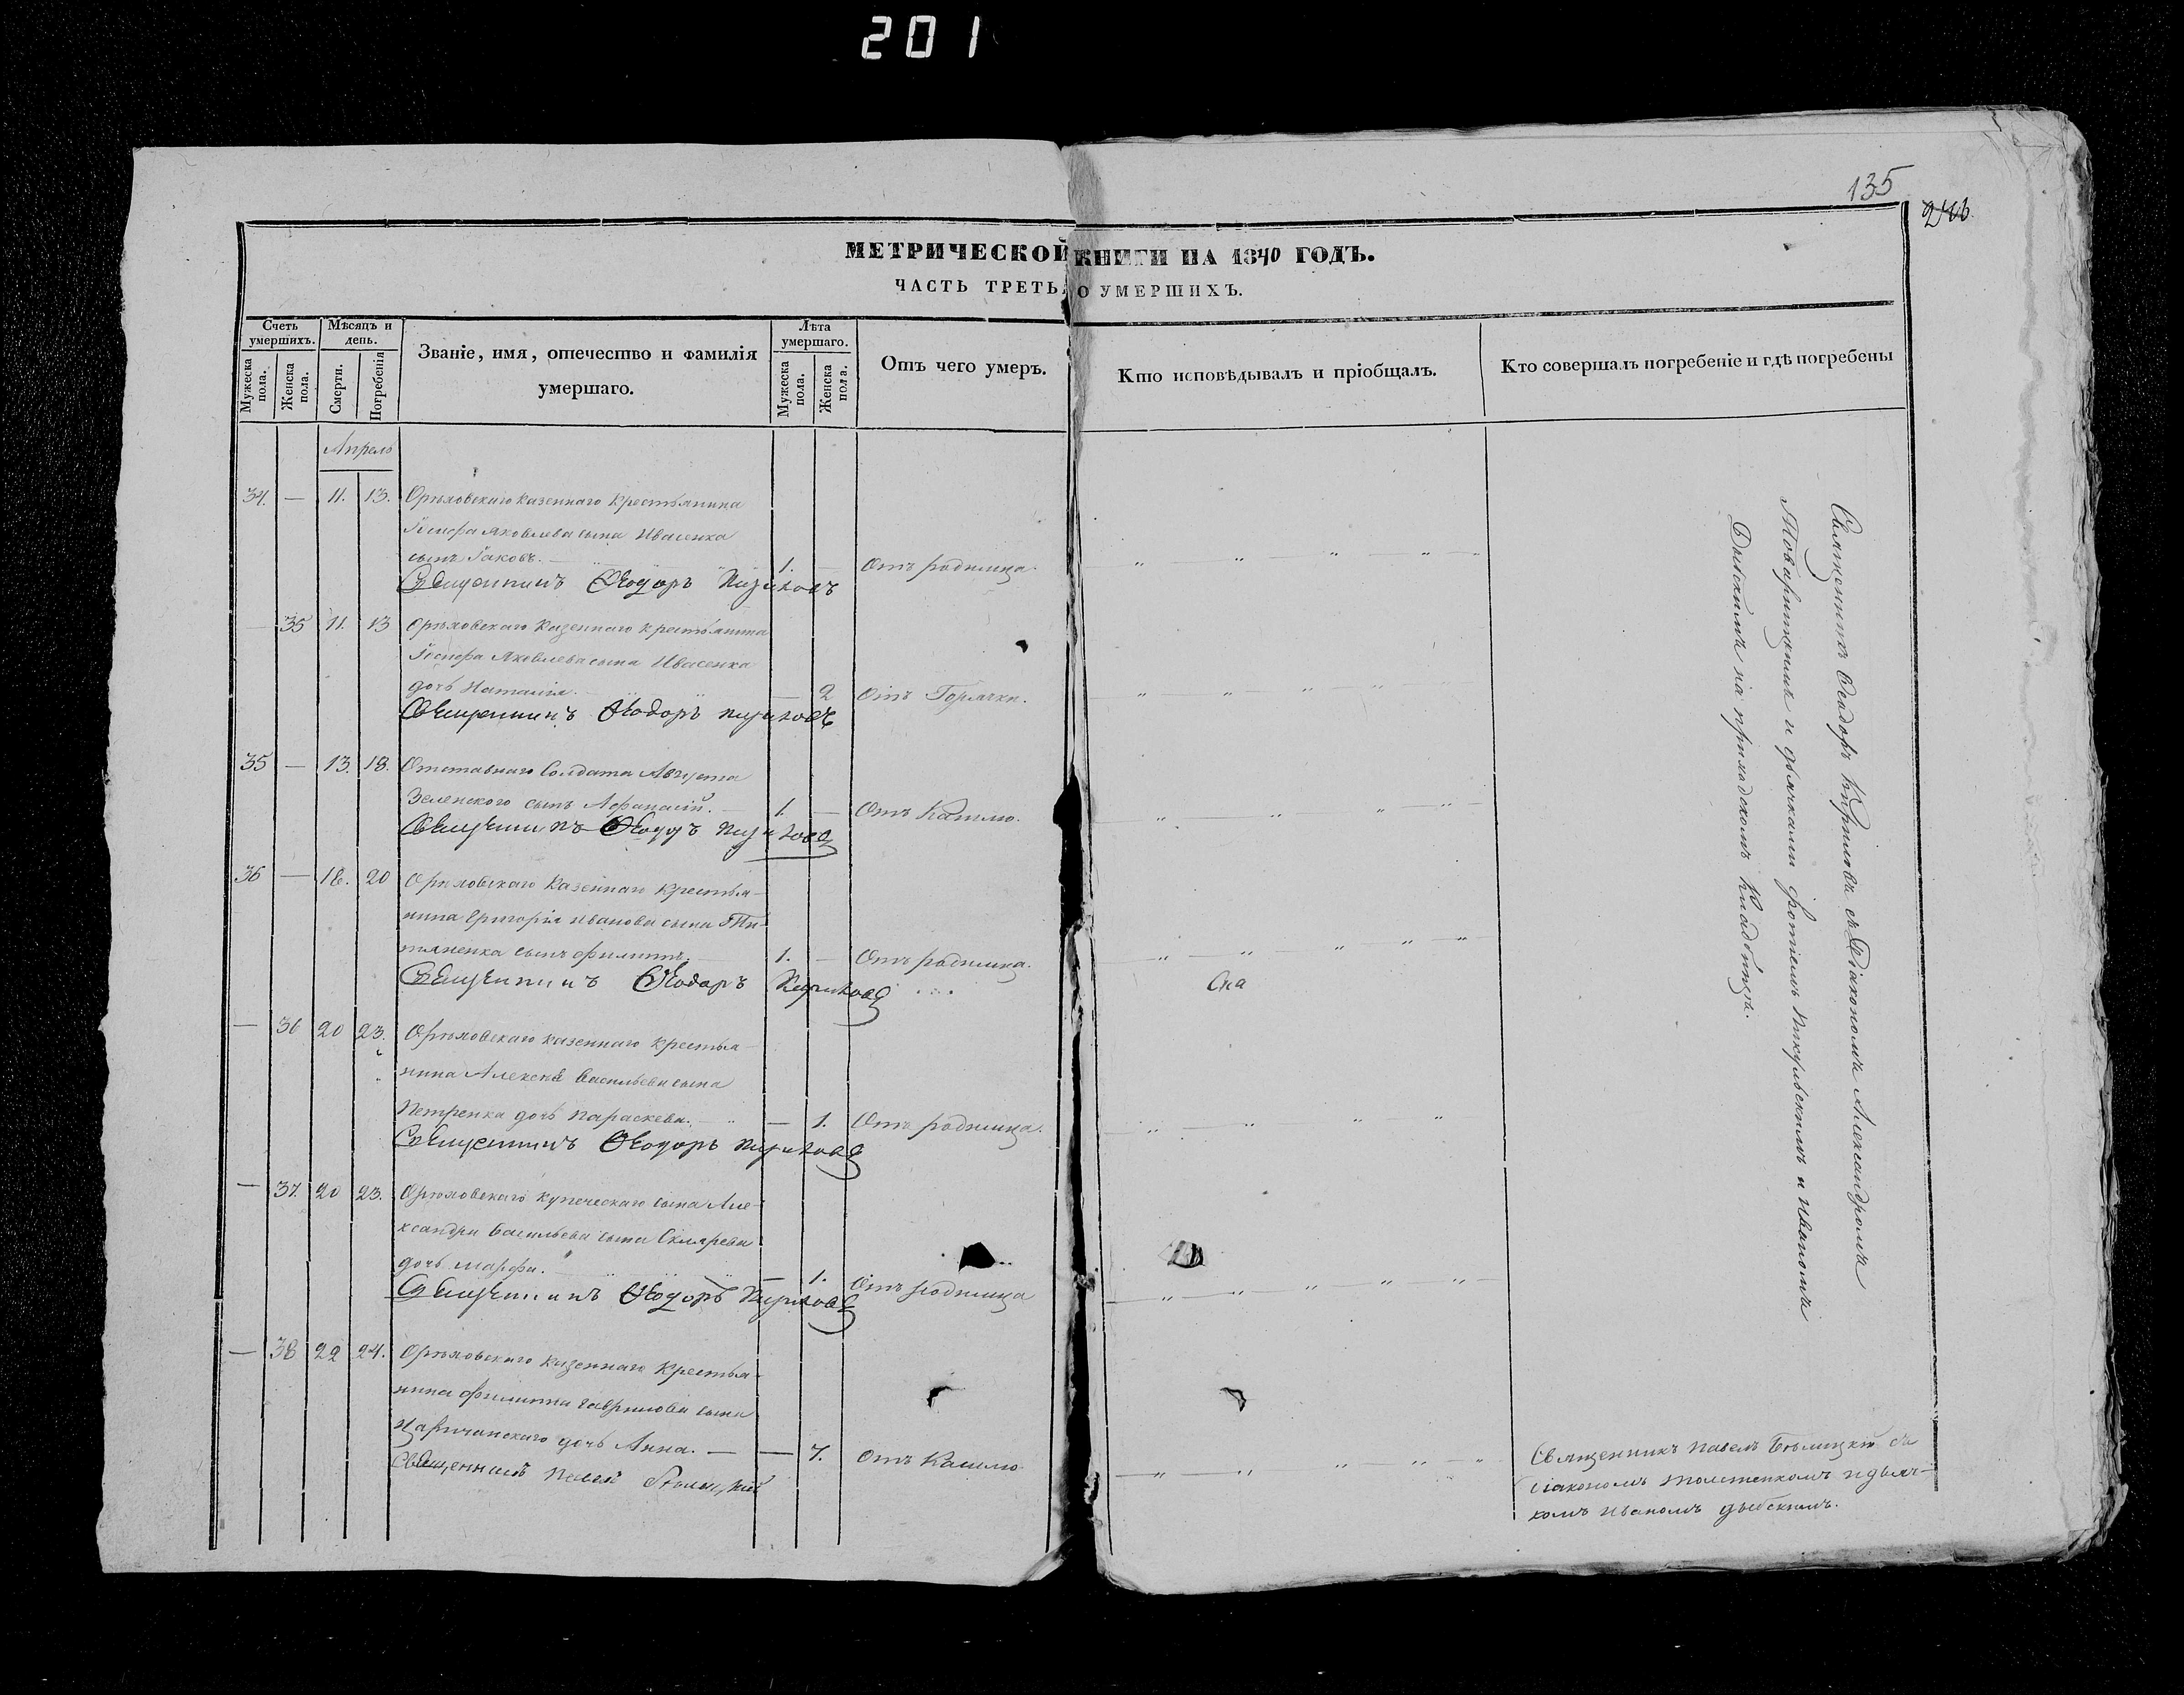 201
135
МЕТРИЧЕСКОЙ КНИГИ НА 1840 ГОДЪ.
ЧАСТЬ ТРЕТЬЯ О УМЕРШИХЪ.
Счетъ умершихъ.
Мужеска пола.
Женска пола.
Мѣсяцъ и день.
Смерти.
Погребенія
Званіе, имя, отечество и фамилія умершаго.
Лѣта умершаго.
Мужеска пола.
Женска пола.
Отъ чего умеръ.
Кто исповѣдывалъ и пріобщалъ.
Кто совершалъ погребеніе и гдѣ погребены
Апрель
34. — 11. 13. Орѣховскаго казеннаго крестьянина
Іосифа Яковлева сына Ивасенка
сынъ Іаковъ. 1. — Отъ родимца.
Священникъ Феодоръ
— 35 11. 13 Орѣховскаго казеннаго крестьянина
Іосифа Яковлева сына Ивасенка
дочь Наталія. — 2 Отъ Горячки.
Священникъ Феодоръ
35 — 13. 18. Отставнаго Солдата Августа
Зеленского сынъ Афанасій. — 1. — Отъ Кашлю.
Священникъ Феодоръ
36 — 18. 20 Орѣховскаго Казеннаго крестья-
нина Григорія Иванова сына
сынъ Филиппъ. 1. — Отъ родимца.
Священникъ Феодоръ
— 36 20 23. Орѣховскаго казеннаго крестья-
нина Алексѣя Васильева сына
Петренка дочь Параскева. — 1. Отъ родимца.
Священникъ Феодоръ
— 37. 20 23. Орѣховскаго купеческаго сына Але-
ксандра Васильева сына Склярева
дочь Марфа. — 1. Отъ родимца
Священникъ Феодоръ
— 38 22 24. Орѣховскаго казеннаго Крестья-
нина Филиппа Гаврилова сына
Царичанскаго дочь Анна. — — 7. Отъ Кашлю
Священникъ Павелъ Бѣлицкій
Священникъ Феодоръ Кириловъ съ Діакономъ Александромъ
и дьячками Фотіемъ Пикульскимъ и Иваномъ
Дыбскимъ на приходскомъ Кладбищѣ.
Священникъ Павелъ Бѣлицкій съ
Діакономъ и дьяч-
комъ Иваномъ Дыбскимъ.